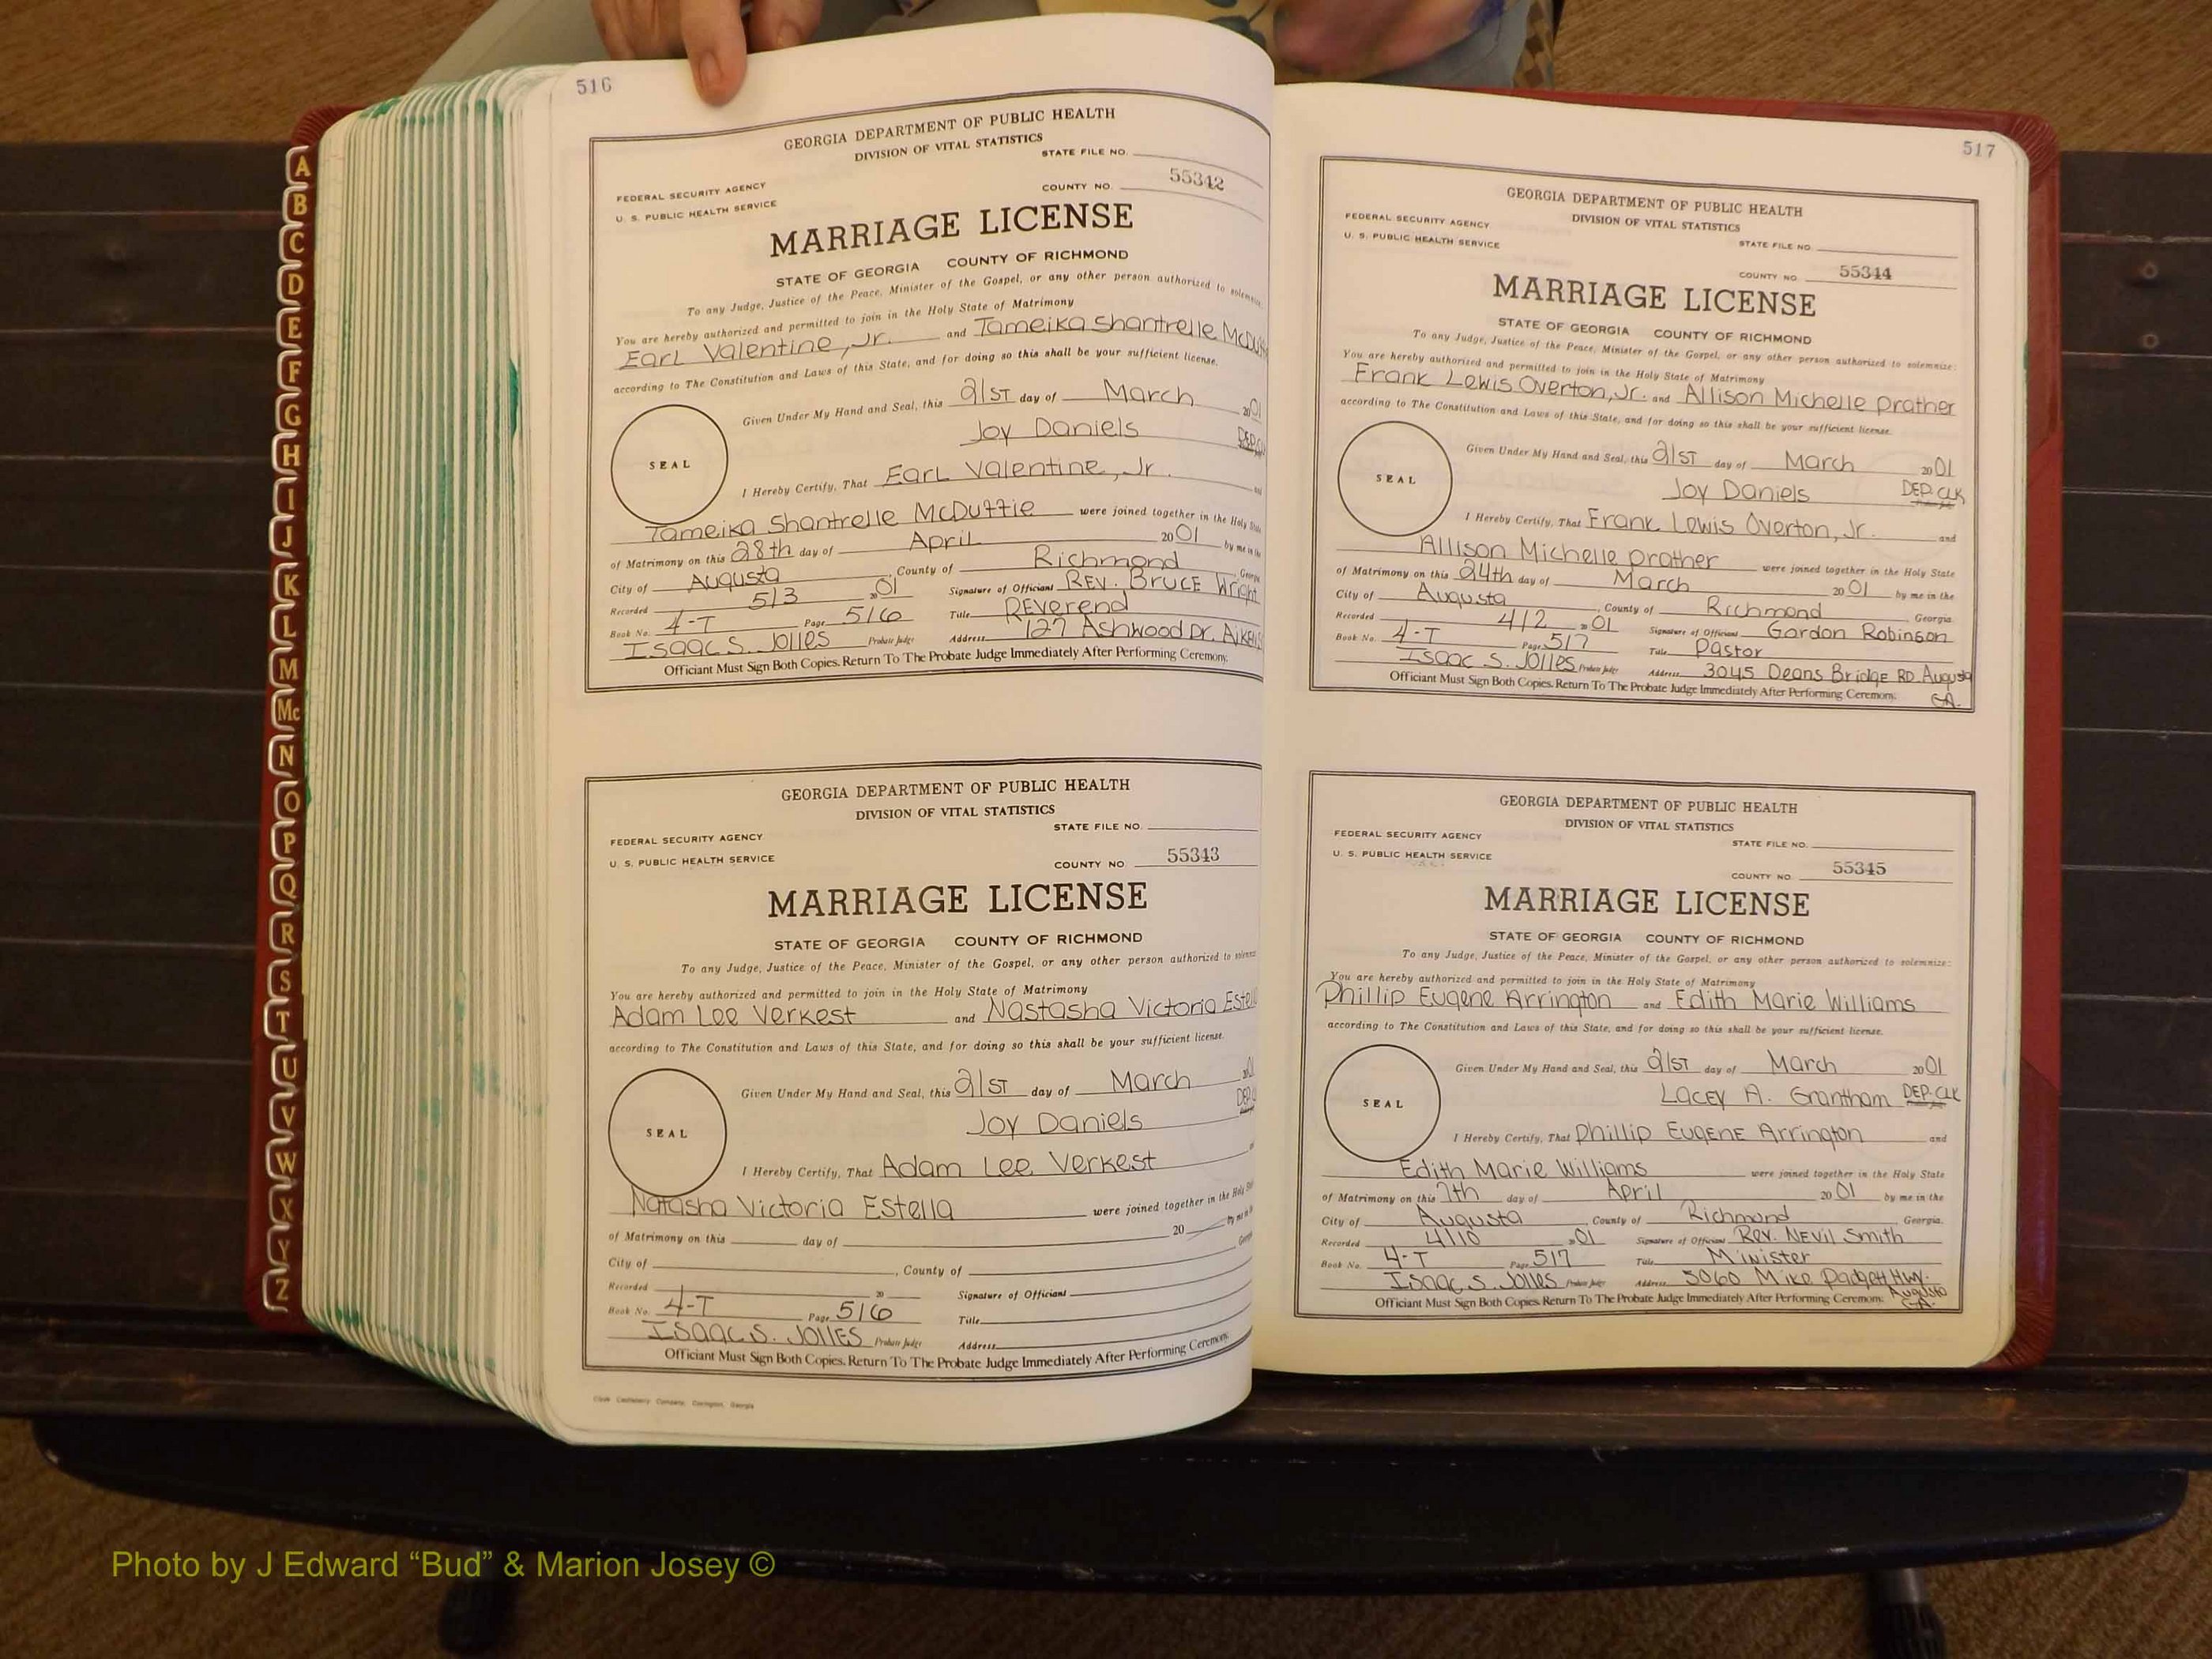 516
GEORGIA DEPARTMENT OF PUBLIC HEALTH
DIVISION OF VITAL STATISTICS
STATE FILE NO.
FEDERAL SECURITY AGENCY
U. S. PUBLIC HEALTH SERVICE
COUNTY NO. 55342
MARRIAGE LICENSE
STATE OF GEORGIA COUNTY OF RICHMOND
To any Judge, Justice of the Peace, Minister of the Gospel, or any other person authorized to
You are hereby authorized and permitted to join in the Holy State of Matrimony
Earl Valentine, Jr. and Tameika Shantrelle
according to The Constitution and Laws of this State, and for doing so this shall be your sufficient license.
Given Under My Hand and Seal, this 21ST day of March 2001
Joy Daniels
SEAL
I Hereby Certify, That Earl Valentine, Jr. and
Tameika Shantrelle McDuffie were joined together in the Holy
of Matrimony on this 28th day of April 2001 by me in the
City of Augusta, County of Richmond
Recorded 5/3 2001 Signature of Officiant REV. BRUCE Wright
Book No. 4-T Page 516 Title REVErend
ISaac S. JOllES Probate Judge Address 127 Ashwood Dr.
Officiant Must Sign Both Copies. Return To The Probate Judge Immediately After Performing Ceremony.
GEORGIA DEPARTMENT OF PUBLIC HEALTH
DIVISION OF VITAL STATISTICS
STATE FILE NO.
FEDERAL SECURITY AGENCY
U. S. PUBLIC HEALTH SERVICE
COUNTY NO. 55343
MARRIAGE LICENSE
STATE OF GEORGIA COUNTY OF RICHMOND
To any Judge, Justice of the Peace, Minister of the Gospel, or any other person authorized to
You are hereby authorized and permitted to join in the Holy State of Matrimony
Adam Lee Verkest and Nastasha Victoria
according to The Constitution and Laws of this State, and for doing so this shall be your sufficient license.
Given Under My Hand and Seal, this 21ST day of March
Joy Daniels
SEAL
I Hereby Certify, That Adam Lee Verkest
Natasha Victoria Estella were joined together in the Holy
of Matrimony on this day of 20
City of , County of
Recorded 20 Signature of Officiant
Book No. 4-T Page 516 Title
ISaac S. JOllES Probate Judge Address
Officiant Must Sign Both Copies. Return To The Probate Judge Immediately After Performing Ceremony.
517
GEORGIA DEPARTMENT OF PUBLIC HEALTH
DIVISION OF VITAL STATISTICS
FEDERAL SECURITY AGENCY
U. S. PUBLIC HEALTH SERVICE
STATE FILE NO.
COUNTY NO. 55344
MARRIAGE LICENSE
STATE OF GEORGIA COUNTY OF RICHMOND
To any Judge, Justice of the Peace, Minister of the Gospel, or any other person authorized to solemnize:
You are hereby authorized and permitted to join in the Holy State of Matrimony
Frank Lewis Overton, Jr. and Allison Michelle Prather
according to The Constitution and Laws of this State, and for doing so this shall be your sufficient license.
Given Under My Hand and Seal, this 21ST day of March 2001
Joy Daniels DEP. CLK
SEAL
I Hereby Certify, That Frank Lewis Overton, Jr. and
Allison Michelle Prather were joined together in the Holy State
of Matrimony on this 24th day of March 2001 by me in the
City of Augusta, County of Richmond Georgia.
Recorded 4/2 2001 Signature of Officiant Gordon Robinson
Book No. 4-T Page 517 Title Pastor
Isaac S. JOllES Probate Judge Address 3045 Deans Bridge RD. Augusta
GA.
Officiant Must Sign Both Copies. Return To The Probate Judge Immediately After Performing Ceremony.
GEORGIA DEPARTMENT OF PUBLIC HEALTH
DIVISION OF VITAL STATISTICS
FEDERAL SECURITY AGENCY
U. S. PUBLIC HEALTH SERVICE
STATE FILE NO.
COUNTY NO. 55345
MARRIAGE LICENSE
STATE OF GEORGIA COUNTY OF RICHMOND
To any Judge, Justice of the Peace, Minister of the Gospel, or any other person authorized to solemnize:
You are hereby authorized and permitted to join in the Holy State of Matrimony
Phillip Eugene Arrington and Edith Marie Williams
according to The Constitution and Laws of this State, and for doing so this shall be your sufficient license.
Given Under My Hand and Seal, this 21ST day of March 2001
Lacey A. Grantham DEP. CLK
SEAL
I Hereby Certify, That Phillip EugenE Arrington and
Edith Marie Williams were joined together in the Holy State
of Matrimony on this 7th day of April 2001 by me in the
City of Augusta, County of Richmond Georgia.
Recorded 4/10 2001 Signature of Officiant Rev. NEVil Smith
Book No. 4-T Page 517 Title Minister
ISaac S. JOllES Probate Judge Address 3060 Mike Padgett Hwy.
Augusta
GA.
Officiant Must Sign Both Copies. Return To The Probate Judge Immediately After Performing Ceremony.
A
B
C
D
E
F
G
H
I
J
K
L
M
Mc
N
O
P
Q
R
S
T
U
V
W
X
Y
Z
Photo by J Edward “Bud” & Marion Josey ©